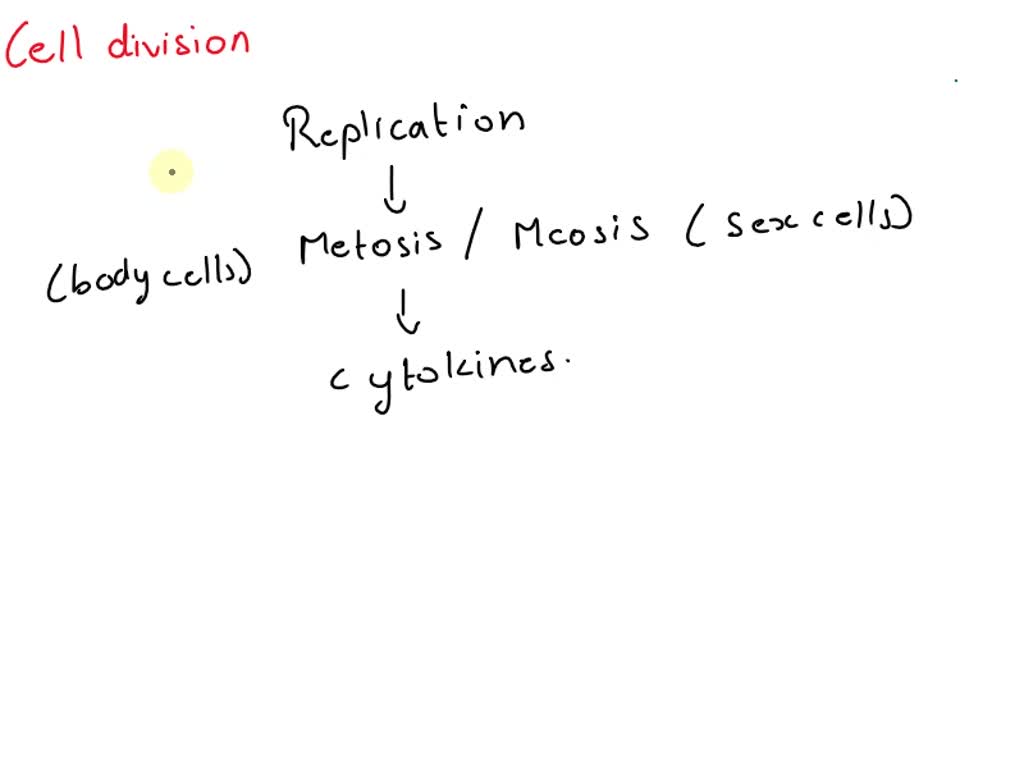 Cell division
Replication
↓
(body cells) Metosis / Meosis (sex cells)
↓
cytokines.